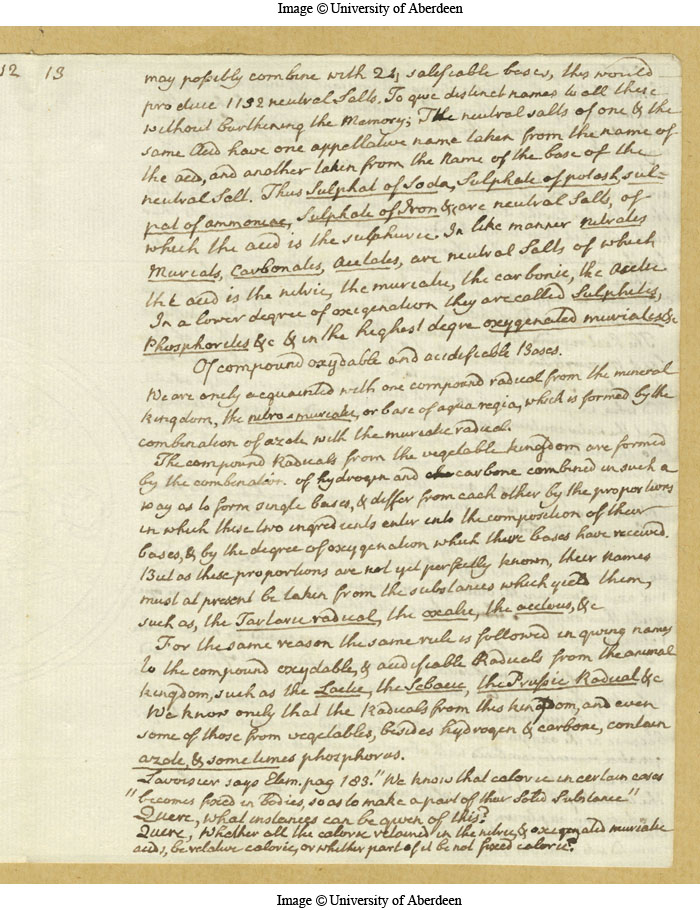 Image © University of Aberdeen
12 13
may possibly combine with 24 salifiable bases, this would
produce 1152 neutral Salts. To give distinct names to all these
without burthening the Memory; The neutral salts of one & the
same Acid have one appellative name taken from the name of
the acid, and another taken from the name of the base of the
neutral Salt. Thus Sulphat of Soda, Sulphate of potash, sul=
pat of ammoniac, Sulphate of Iron &c are neutral Salts, of
which the acid is the sulphuric. In like manner nitrates
Muriats, Carbonates, Acetates, are neutral Salts of which
the acid is the nitric, the muriatic, the carbonic, the Acetic
In a lower degree of oxigenation they are called Sulphites,
Phosphorites &c & in the highest degre oxygenated muriates &c
Of compound oxydable and acidifiable Bases.
We are onely acquainted with one compound radical from the mineral
kingdom, the nitro-muriatic, or base of aqua regia, which is formed by the
combination of azote with the muriatic radical.
The compound Radicals from the vegetable kingdom are formed
by the combination of hydrogen and carbone combined in such a
way as to form single bases, & differ from each other by the proportions
in which these two ingredients enter into the composition of their
bases, & by the degree of oxygenation which these bases have received.
But as these proportions are not yet perfectly known, their names
must at present be taken from the substances which yield them,
such as, the Tartaric radical, the oxalic, the acetous, &c
For the same reason the same rule is followed in giving names
to the compound oxydable, & acidifiable Radicals from the animal
kingdom, such as the Lactic, the Sebacic, the Prussic Radical &c
We know onely that the Radicals from this kingdom, and even
some of those from vegetables, besides hydrogen & carbone, contain
azote, & sometimes phosphorus.
Lavoisier says Elem. pag 183. "We know that caloric in certain cases
"becomes fixed in bodies, so as to make a part of their Solid Substance"
Quere, what instances can be given of this?
Quere, Whether all the caloric retained in the nitric, & oxigenated muriatic
acids, be relative caloric, or whether part of it be not fixed caloric?
Image © University of Aberdeen